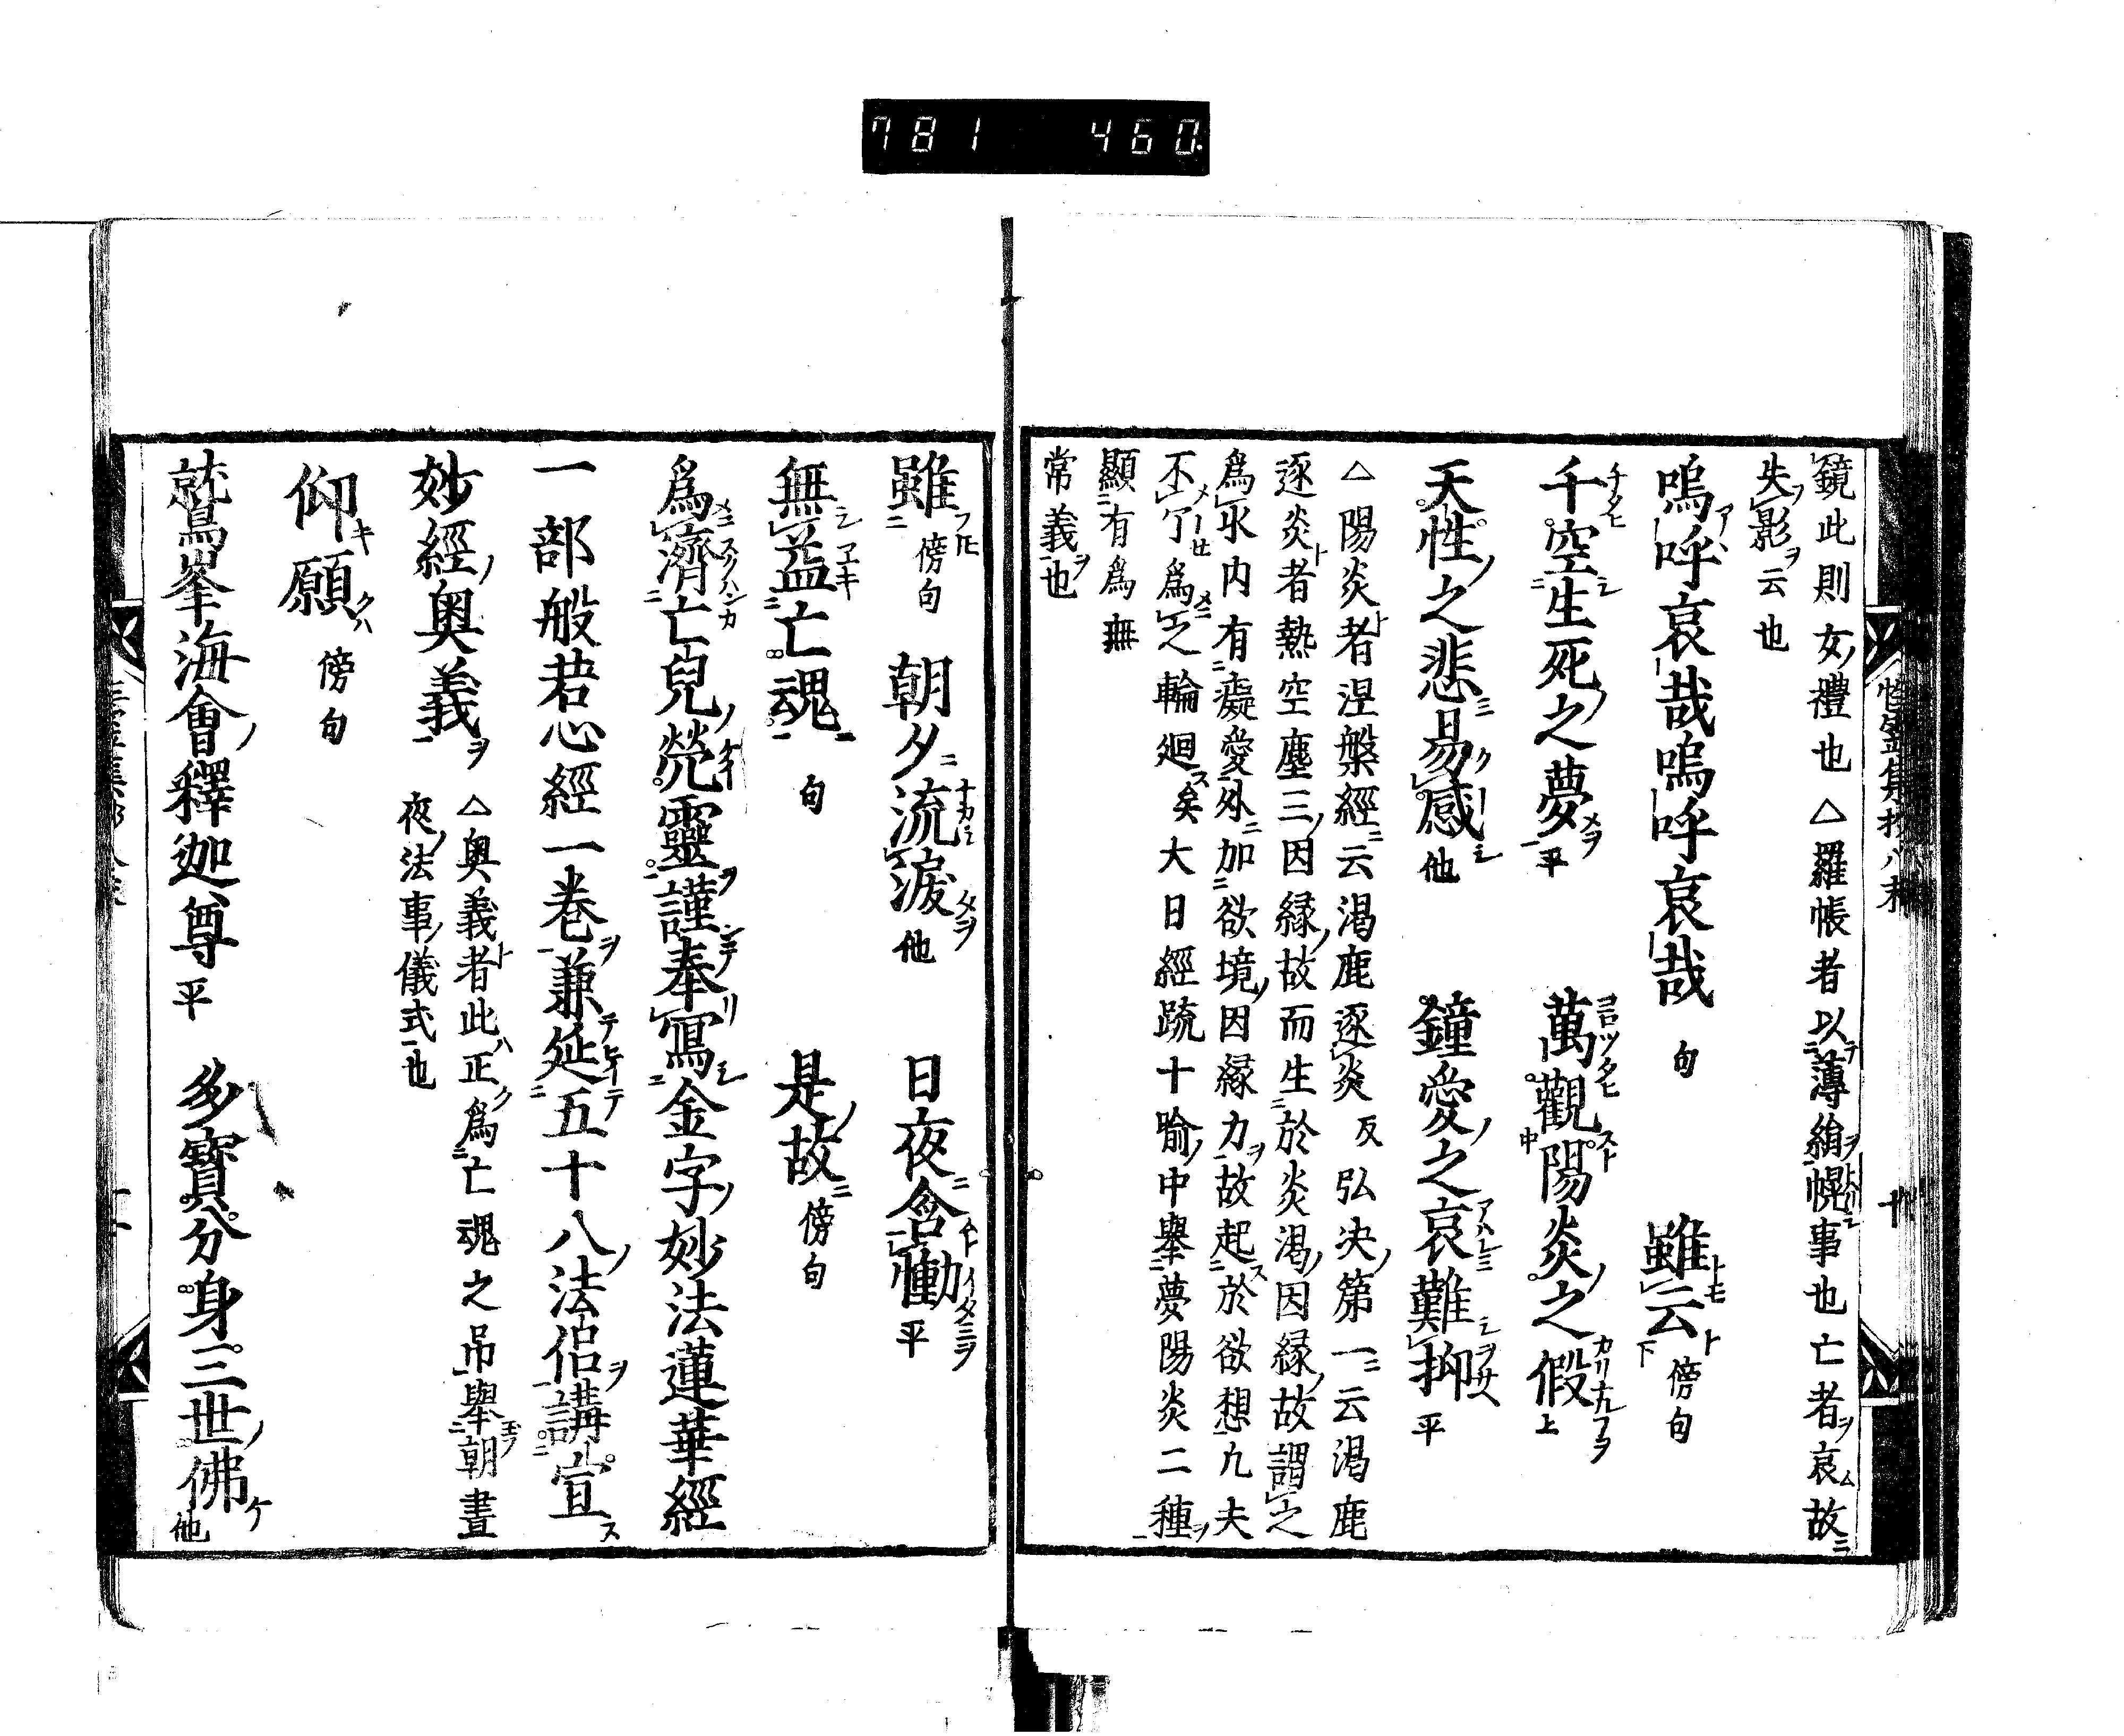 781 460
鏡此則女禮也△羅帳者以薄絹幌事也亡者哀故
失影云也
嗚呼哀哉嗚呼哀哉 句 雖云 傍句
千空生死之夢 平 萬觀陽炎之假 上
天性之悲易感 他 鐘愛之哀難抑 平
△陽炎者涅槃經云渇鹿逐炎 反 弘决第一云渇鹿
逐炎者熱空塵三因縁故而生於炎渇因縁故謂之
爲水内有癡愛外加欲境因縁力故起於欲想凡夫
不了爲之輪廻矣大日經䟽十喩中擧夢陽炎二種
顯有爲無
常義也
雖 傍句 朝夕流淚 他 日夜含慟 平
無益亡魂 句 是故 傍句
爲濟亡兒焭靈謹奉寫金字妙法蓮華經
一部般若心經一巻兼延五十八法侶講宣
妙經奥義 △奥義者此正爲亡魂之吊擧朝晝
夜法事儀式也
仰願 傍句
鷲峯海會釋迦尊 平 多寳分身三世佛 他